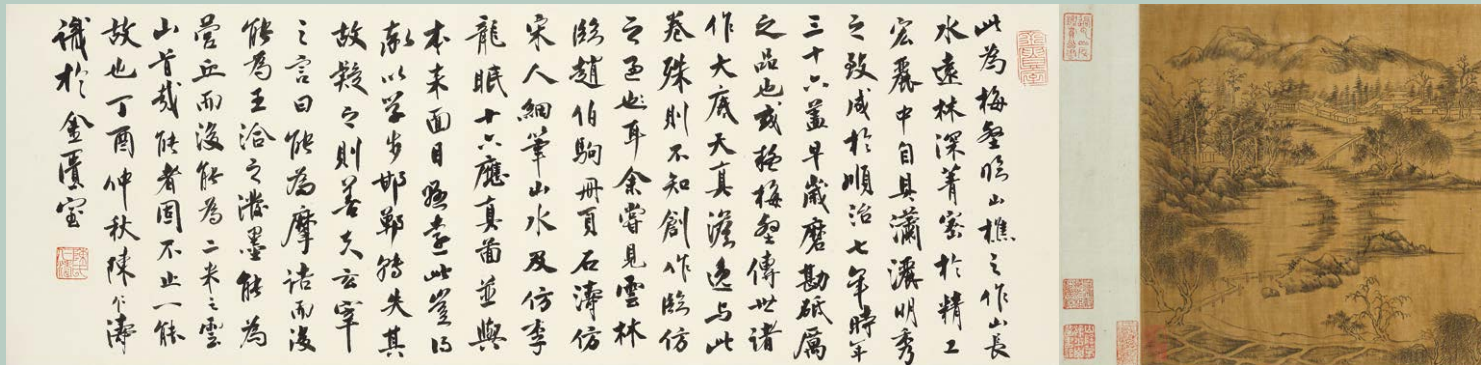 此為梅壑臨山樵之作山長
水遠林深菁密於精工
宏麗中自具瀟灑明秀
之致成於順治七年時年
三十六蓋早歲磨勘砥厲
之品也或梅壑傳世諸
作大底天真澹逸与此
卷殊則不知創作臨仿
之也耳余嘗見雲林
臨趙伯駒冊頁石濤仿
宋人細筆山水及仿李
龍眠十六應真圖並與
本來面目懸遠此豈得
以学步邯鄲轉失其
故疑之則善夫玄宰
之言曰能為摩詰而後
能為王洽之潑墨能為
營丘而後能為二米之雲
山旨哉能者固不止一能
故也丁酉仲秋陳濤
識於金匱室